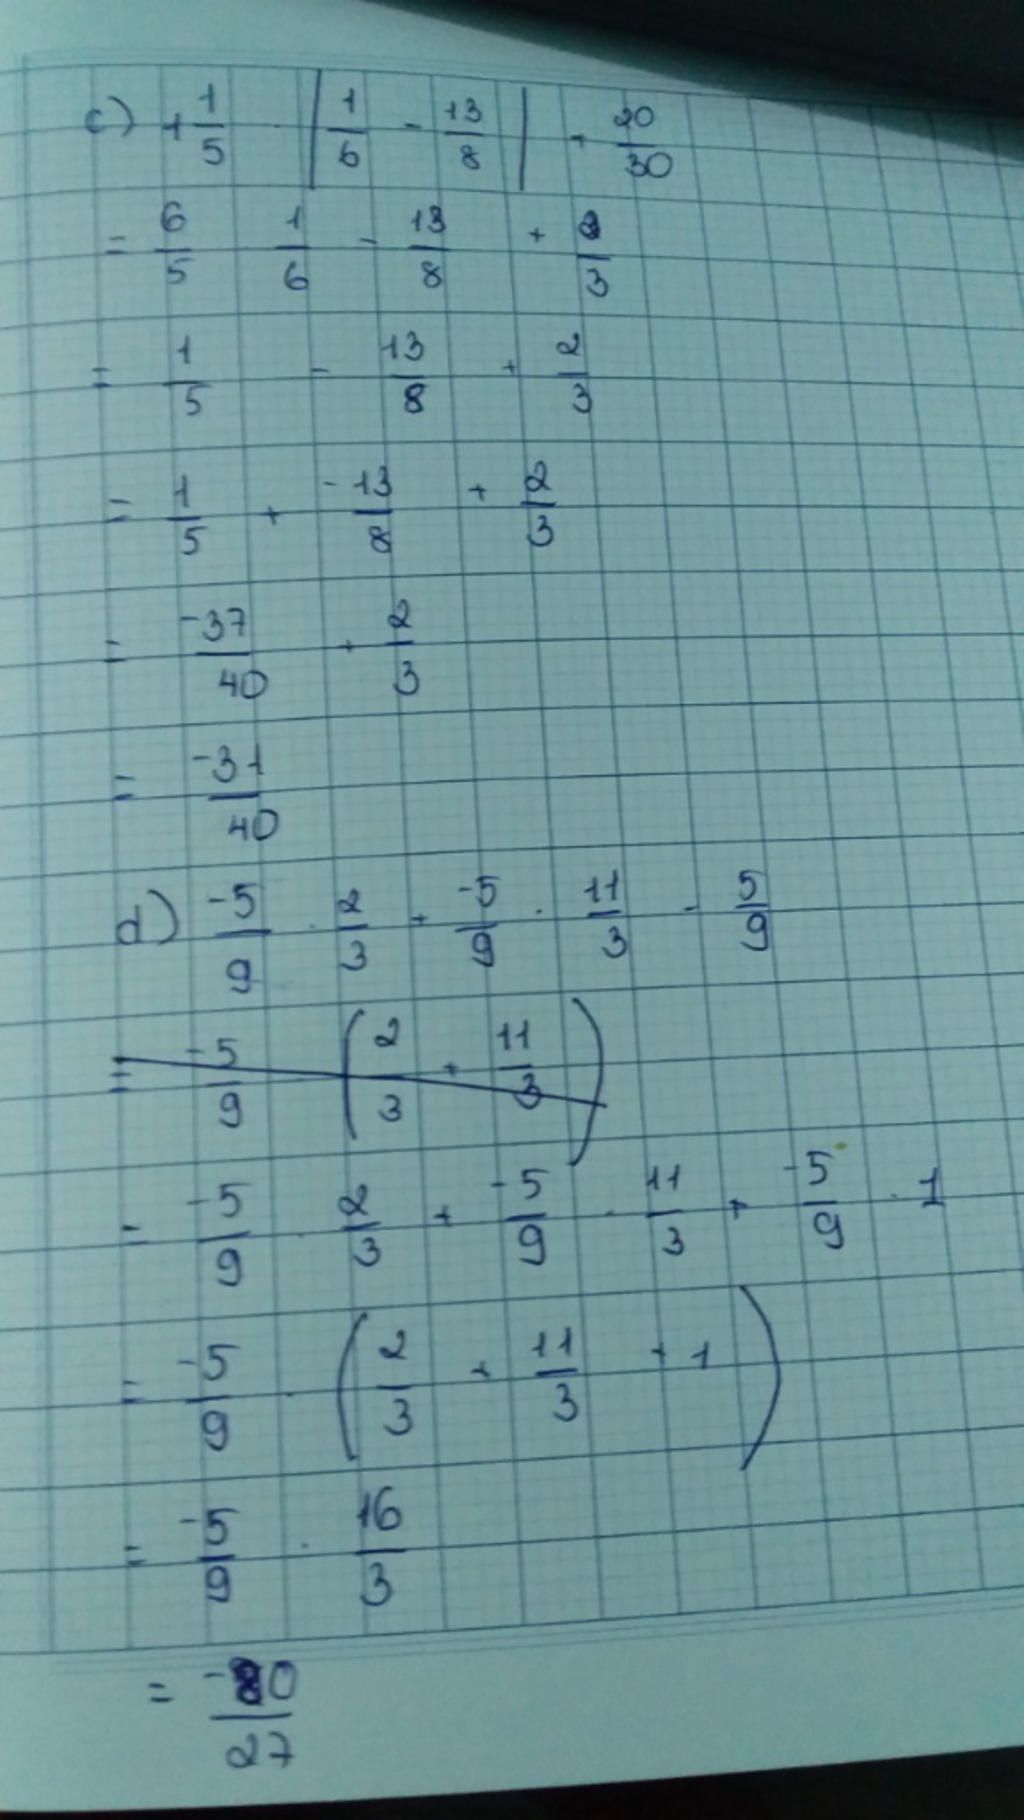 c) +1/5 · |1/6 - 13/8| + 20/30
= 6/5 · 1/6 - 13/8 + 2/3
= 1/5 - 13/8 + 2/3
= 1/5 + -13/8 + 2/3
= -37/40 + 2/3
= -31/40
d) -5/9 · 2/3 + -5/9 · 11/3 - 5/9
= -5/9 (2/3 + 11/3)
= -5/9 · 2/3 + -5/9 · 11/3 + -5/9 · 1
= -5/9 · (2/3 + 11/3 + 1)
= -5/9 · 16/3
= -80/27